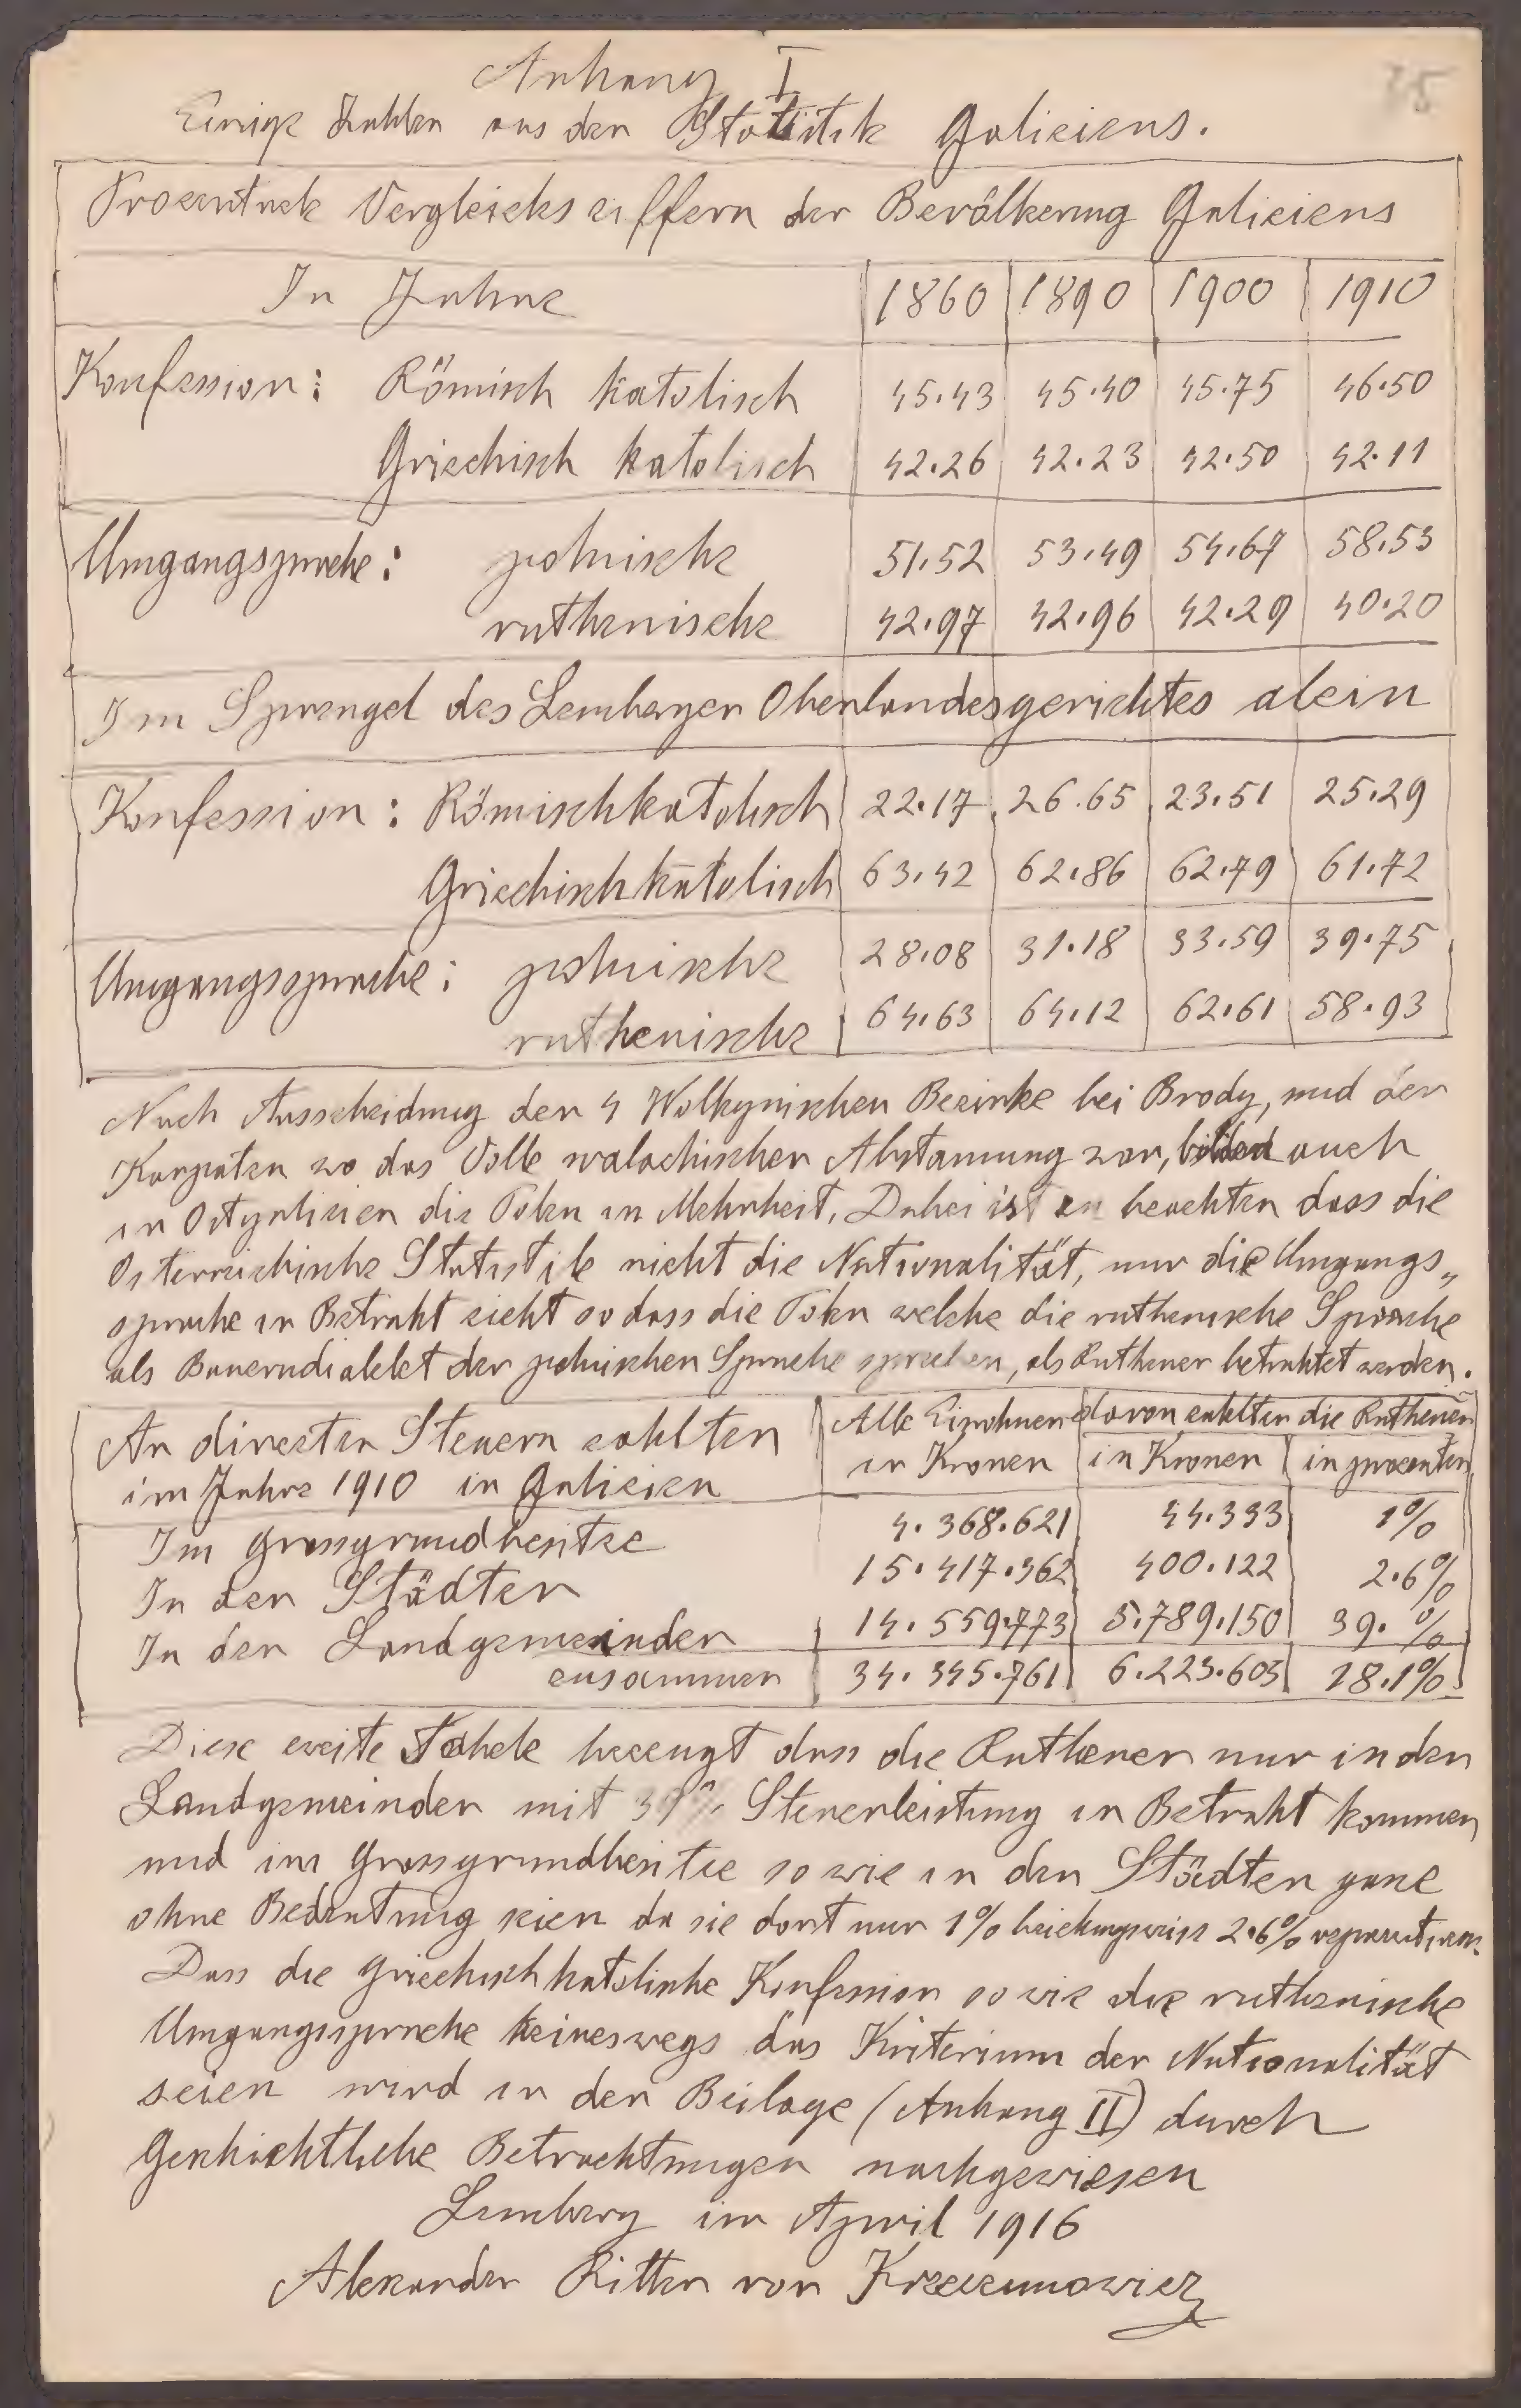 75
Anhang I
Einige Zahlen aus der Statistik Galiziens.
Prozentuele Vergleichsziffern der Bevölkerung Galiziens
In Jahre 1860 1890 1900 1910
Konfession: Römisch katolisch 45.43 45.40 45.75 46.50
Griechisch katolisch 42.26 42.23 42.50 42.11
Umgangsprache: polnische 51.52 53.49 54.67 58.53
ruthenische 42.97 42.96 42.29 40.20
Im Sprengel des Lemberger Oberlandesgerichtes alein
Konfession: Römischkatolisch 22.17 26.65 23.51 25.29
Griechischkatolisch 63.42 62.86 62.79 61.72
Umgangssprache: polnische 28.08 31.18 33.59 39.75
ruthenische 64.63 64.12 62.61 58.93
Nach Ausscheidung der 4 Wolhynischen Bezirke bei Brody, und der
Karpaten wo das Volk walachischer Abstammung war, bilden auch
in Ostgalizien die Polen in Mehrheit, Dabei ist zu beachten dass die
Österreichische Statistik nicht die Nationalität, nur die Umgangs„
sprache in Betraht zieht so dass die Polen welche die ruthenische Sprache
als Bauerndialekt der polnischen Sprache sprechen, als Ruthener betrahtet werden.
An direkten Steuern zahlten Alle Einwohner davon entelten die Ruthenen
im Jahre 1910 in Galizien in Kronen in Kronen in prozenten
Im Grossgrundbesitze 4.368.621 44.333 1%
In den Städten 15.417.362 400.122 2.6%
In den Landgemeinden 14.559.773 5.789.150 39.%
zusammen 34.345.761 6.223.605 18.1%
Diese zweite Tabele bezeugt dass die Ruthener nur in den
Landgemeinden mit 39% Steuerleistung in Betraht kommen
und im Grossgrundbesitze so wie in den Städten ganz
ohne Bedeutung seien da sie dort nur 1% beziehungsweise 2.6% representiren.
Dass die griechischkatolishe Konfession so wie die ruthenische
Umgangssprache keineswegs das Kriterium der Nationalität
seien wird in der Beilage (Anhang II) durch
Geschichtliche Betrachtungen nachgewiesen
Lemberg im April 1916
Alexander Ritter von Krzeczunowicz